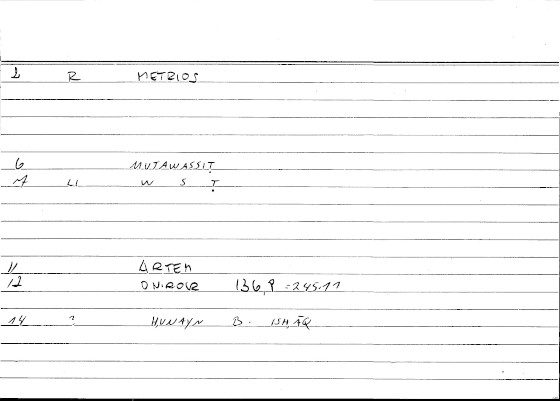 1 R METRIOS
6 MUTAWASSIṬ
7 LI W S Ṭ
11 ARTEM
12 ONIROCR 136,9 = 245.11
14 ? ḤUNAYN B. ISḤĀQ